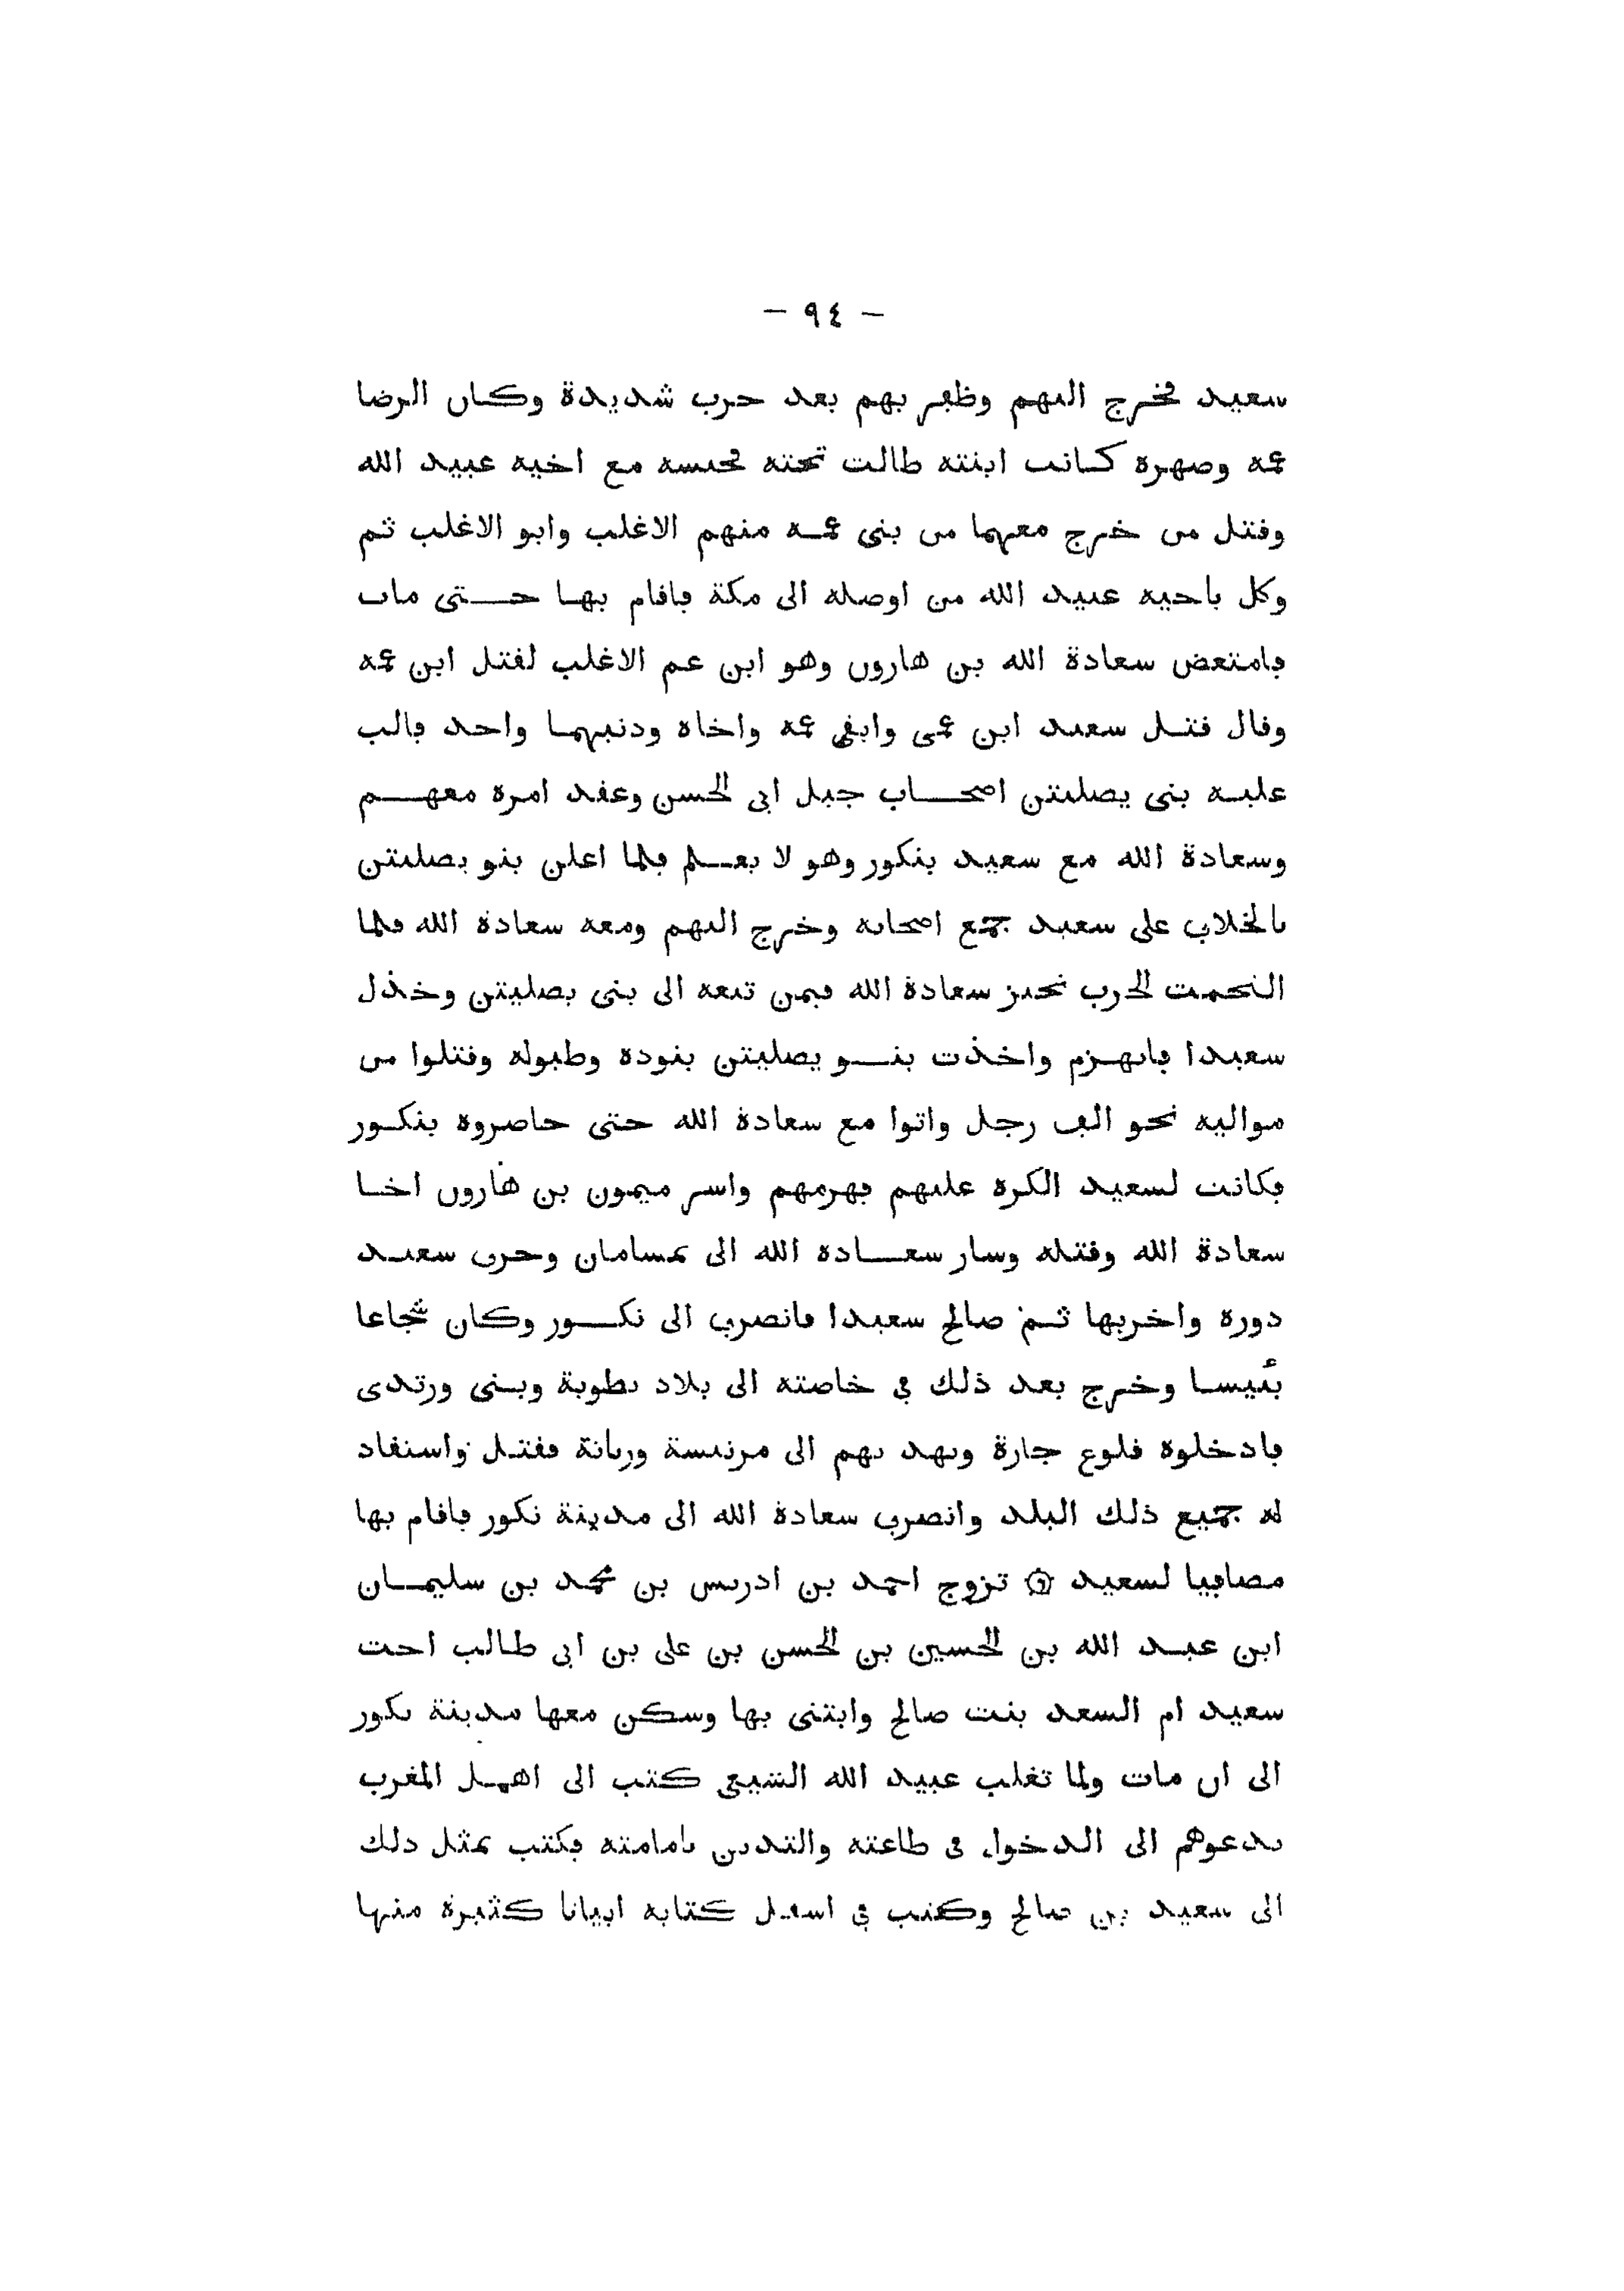 – ٩٤ –
سعيد فخرج اليهم وظفر بهم بعد حرب شديدة وكان الرضا
عمه وصهره كانت ابنته طالت تحته فحبسه مع اخيه عبيد الله
وقتل من خرج معهما من بني عمه منهم الاغلب وابو الاغلب ثم
وكل باخيه عبيد الله من اوصله الى مكة فاقام بها حتى مات
فامتعض سعادة الله بن هارون وهو ابن عم الاغلب لقتل ابن عمه
وقال قتل سعيد ابن عمى وابقى عمه واخاه وذنبهما واحد فالب
عليه بنى يصليتن اصحاب جبل ابى الحسن وعقد امره معهم
وسعادة الله مع سعيد بنكور وهو لا يعلم فلما اعلن بنو يصليتن
بالخلاف على سعيد جمع اصحابه وخرج اليهم ومعه سعادة الله فلما
التحمت الحرب تحيز سعادة الله فيمن تبعه الى بنى يصليتن وخذل
سعيدا فانهزم واخذت بنو يصليتن بنوده وطبوله وقتلوا من
مواليه نحو الف رجل واتوا مع سعادة الله حتى حاصروه بنكور
فكانت لسعيد الكرة عليهم فهزمهم واسر ميمون بن هارون اخا
سعادة الله وقتله وسار سعادة الله الى تمسامان وحرق سعيد
دوره واخربها ثم صالح سعيدا فانصرف الى نكور وكان شجاعا
بئيسا وخرج بعد ذلك في خاصته الى بلاد بطوية وبنى ورتدى
فادخلوه قلوع جارة ونهد بهم الى مرنيسة وربانة فقتل واستقاد
له جميع ذلك البلد وانصرف سعادة الله الى مدينة نكور فاقام بها
مصافيا لسعيد ۞ تزوج احمد بن ادريس بن محمد بن سليمان
ابن عبد الله بن الحسين بن الحسن بن على بن ابى طالب اخت
سعيد ام السعد بنت صالح وابتنى بها وسكن معها مدينة نكور
الى ان مات ولما تغلب عبيد الله الشيعى كتب الى اهل المغرب
يدعوهم الى الدخول في طاعته والتدين بامامته فكتب بمثل ذلك
الى سعيد بن صالح وكتب في اسفل كتابه ابياتا كثيرة منها